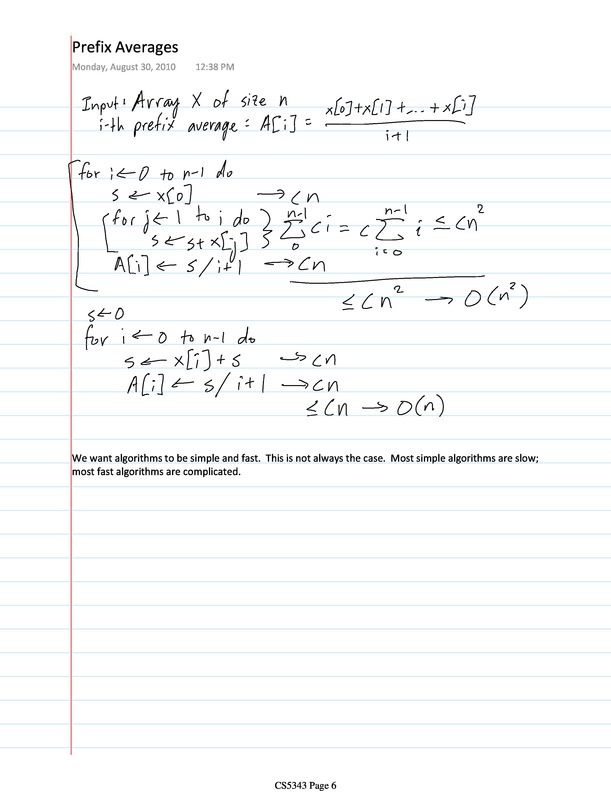 Prefix Averages
Monday, August 30, 2010 12:38 PM
Input: Array X of size n
i-th prefix average : A[i] = x[0]+x[1]+...+x[i] / i+1
for i ← 0 to n-1 do
s ← x[0] → cn
for j ← 1 to i do
s ← s + x[j] } ∑_0^{n-1} ci = c ∑_{i=0}^{n-1} i ≤ cn²
A[i] ← s/i+1 → cn
≤ cn² → O(n²)
s ← 0
for i ← 0 to n-1 do
s ← x[i] + s → cn
A[i] ← s/i+1 → cn
≤ cn → O(n)
We want algorithms to be simple and fast. This is not always the case. Most simple algorithms are slow;
most fast algorithms are complicated.
CS5343 Page 6